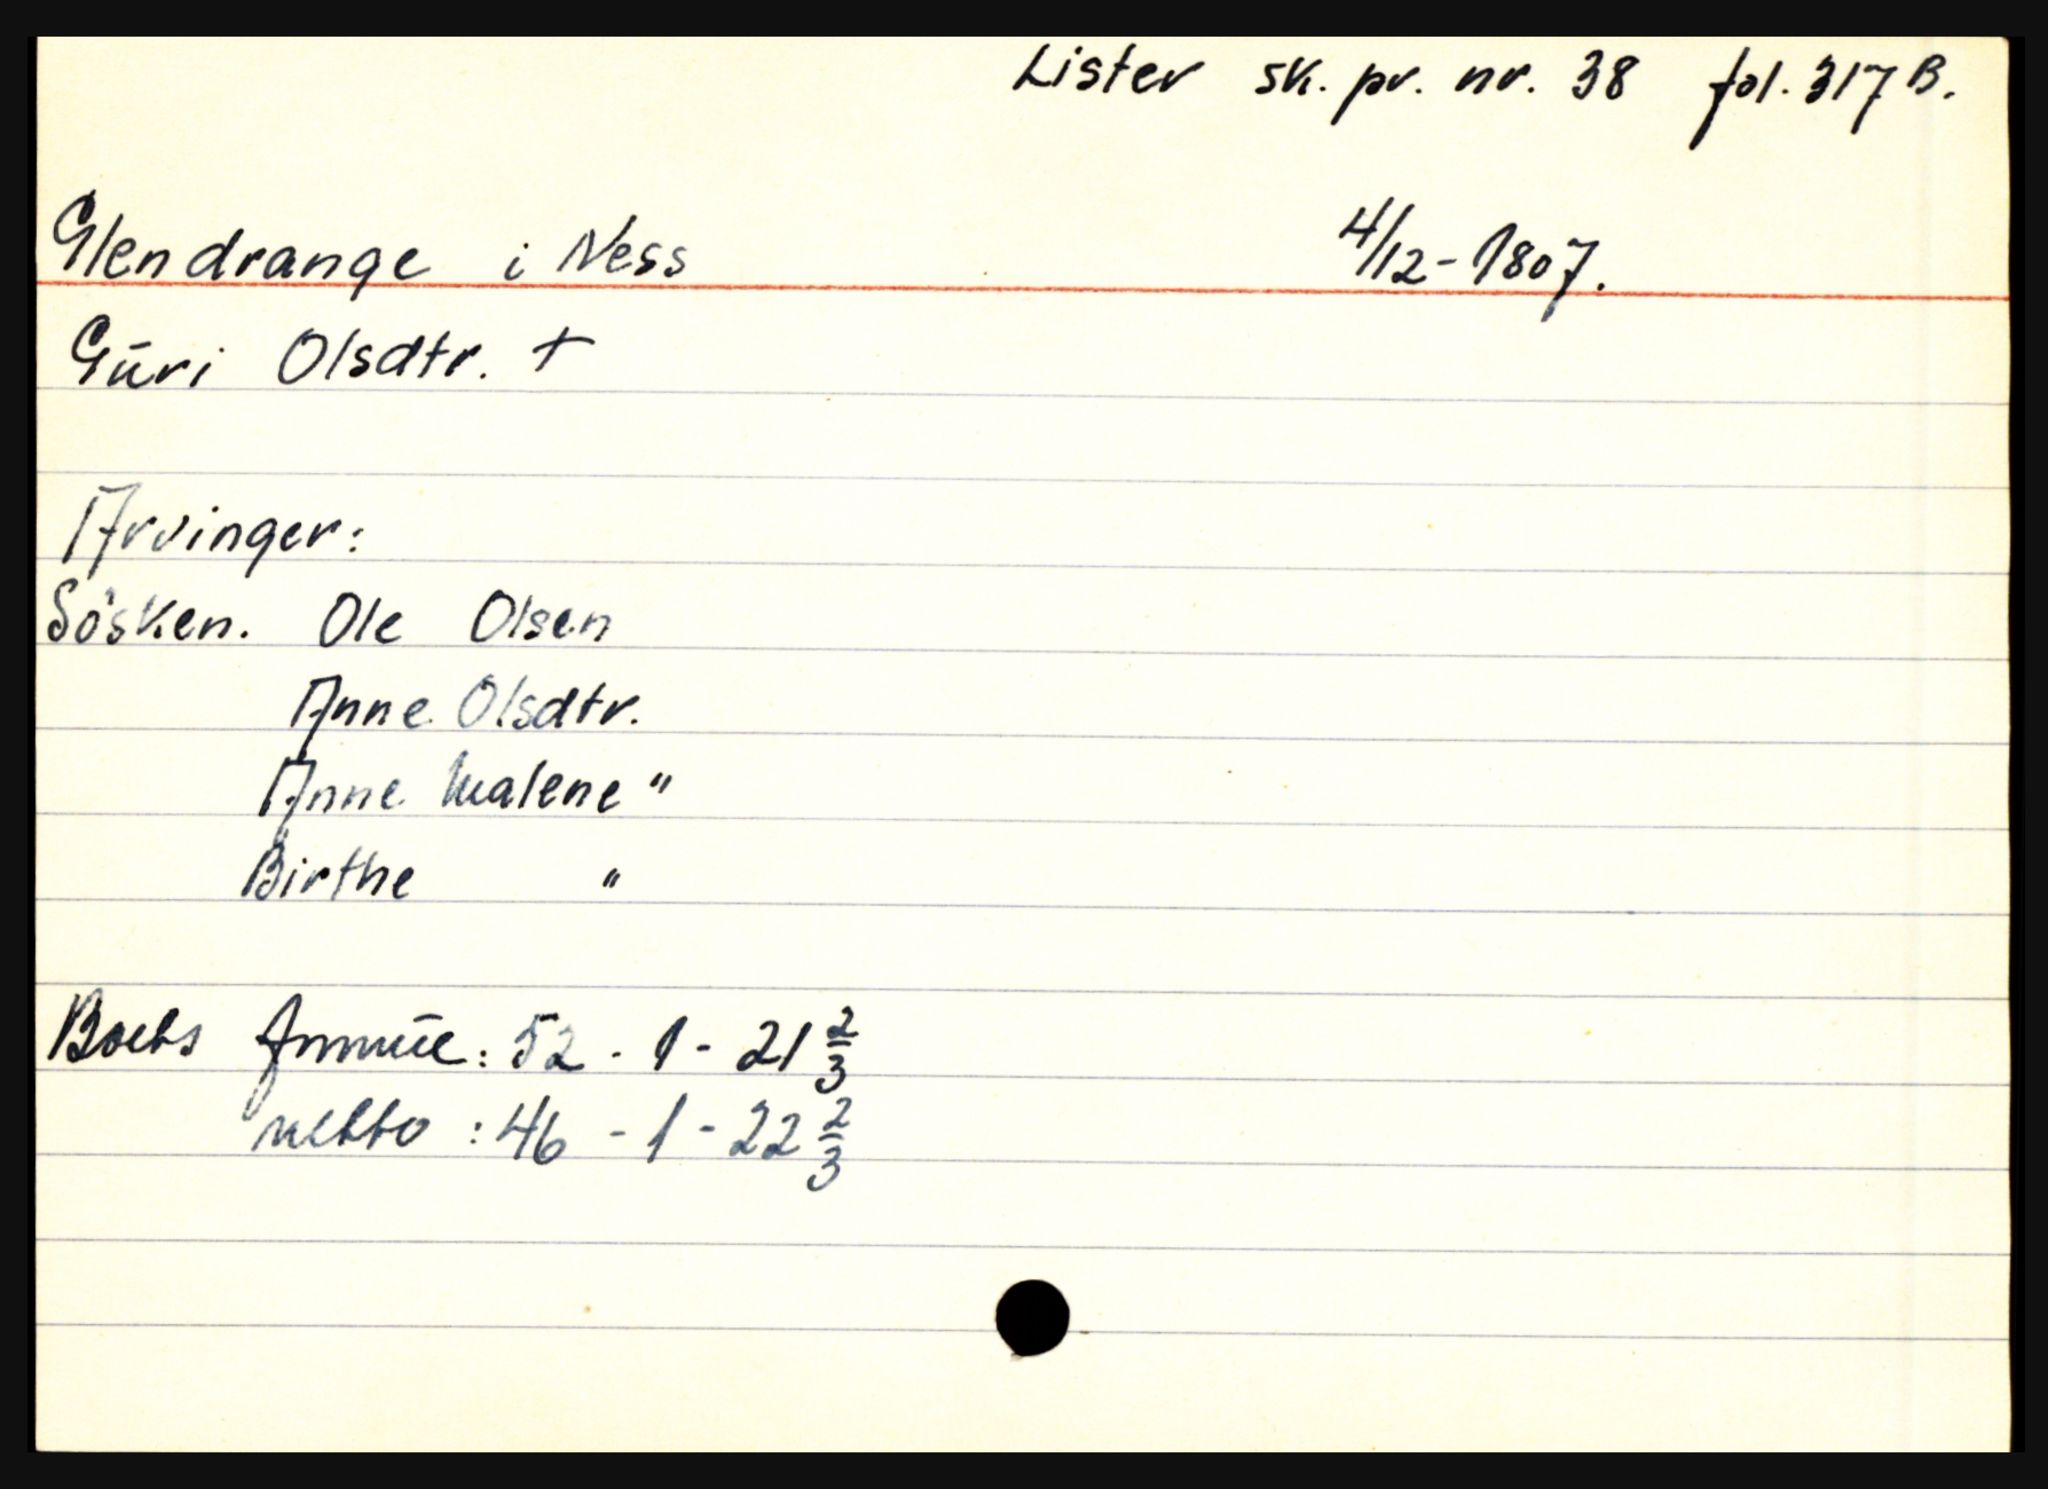 Lister sk. pr. nr. 38 fol. 317 B.
Glendrange i Ness 4/12-1807.
Guri Olsdtr. +
Arvinger:
Sösken. Ole Olsen
Anne Olsdtr.
Anne Malene "
Birthe "
Boets : 52 - 1 - 21 2/3
netto : 46 - 1 - 22 2/3